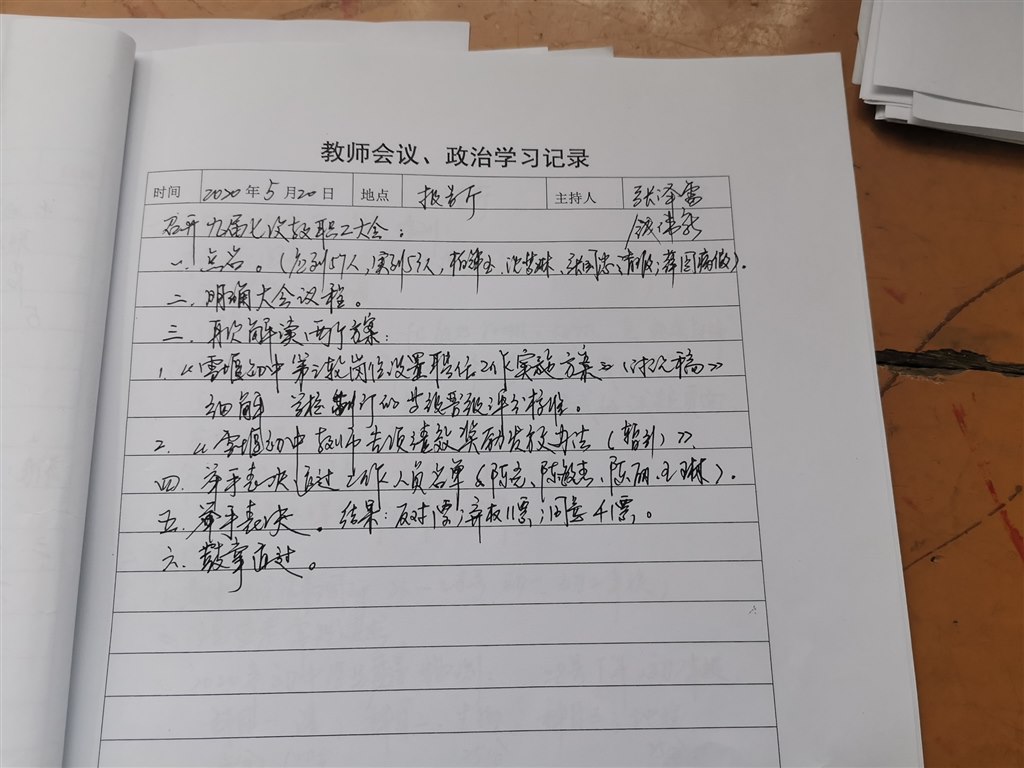 教师会议、政治学习记录
时间 2020年5月20日 地点 报告厅 主持人 张泽雷
召开九届七次教职工大会：
一、点名。(应到57人,实到53人,
二、明确大会议程。
三、再次解读两个方案：
1.《雪堰初中第三轮岗位设置聘任工作实施方案》(讨论稿》
细解 学校制订的 晋级评分标准。
2.《雪堰初中教师专项绩效奖励发放办法(暂行)》
四、举手表决通过工作人员名单(陈亮、陈敏杰、陈丽、王琳).
五.举手表决。结果:反对1票;弃权11票;同意41票。
六.鼓掌通过。